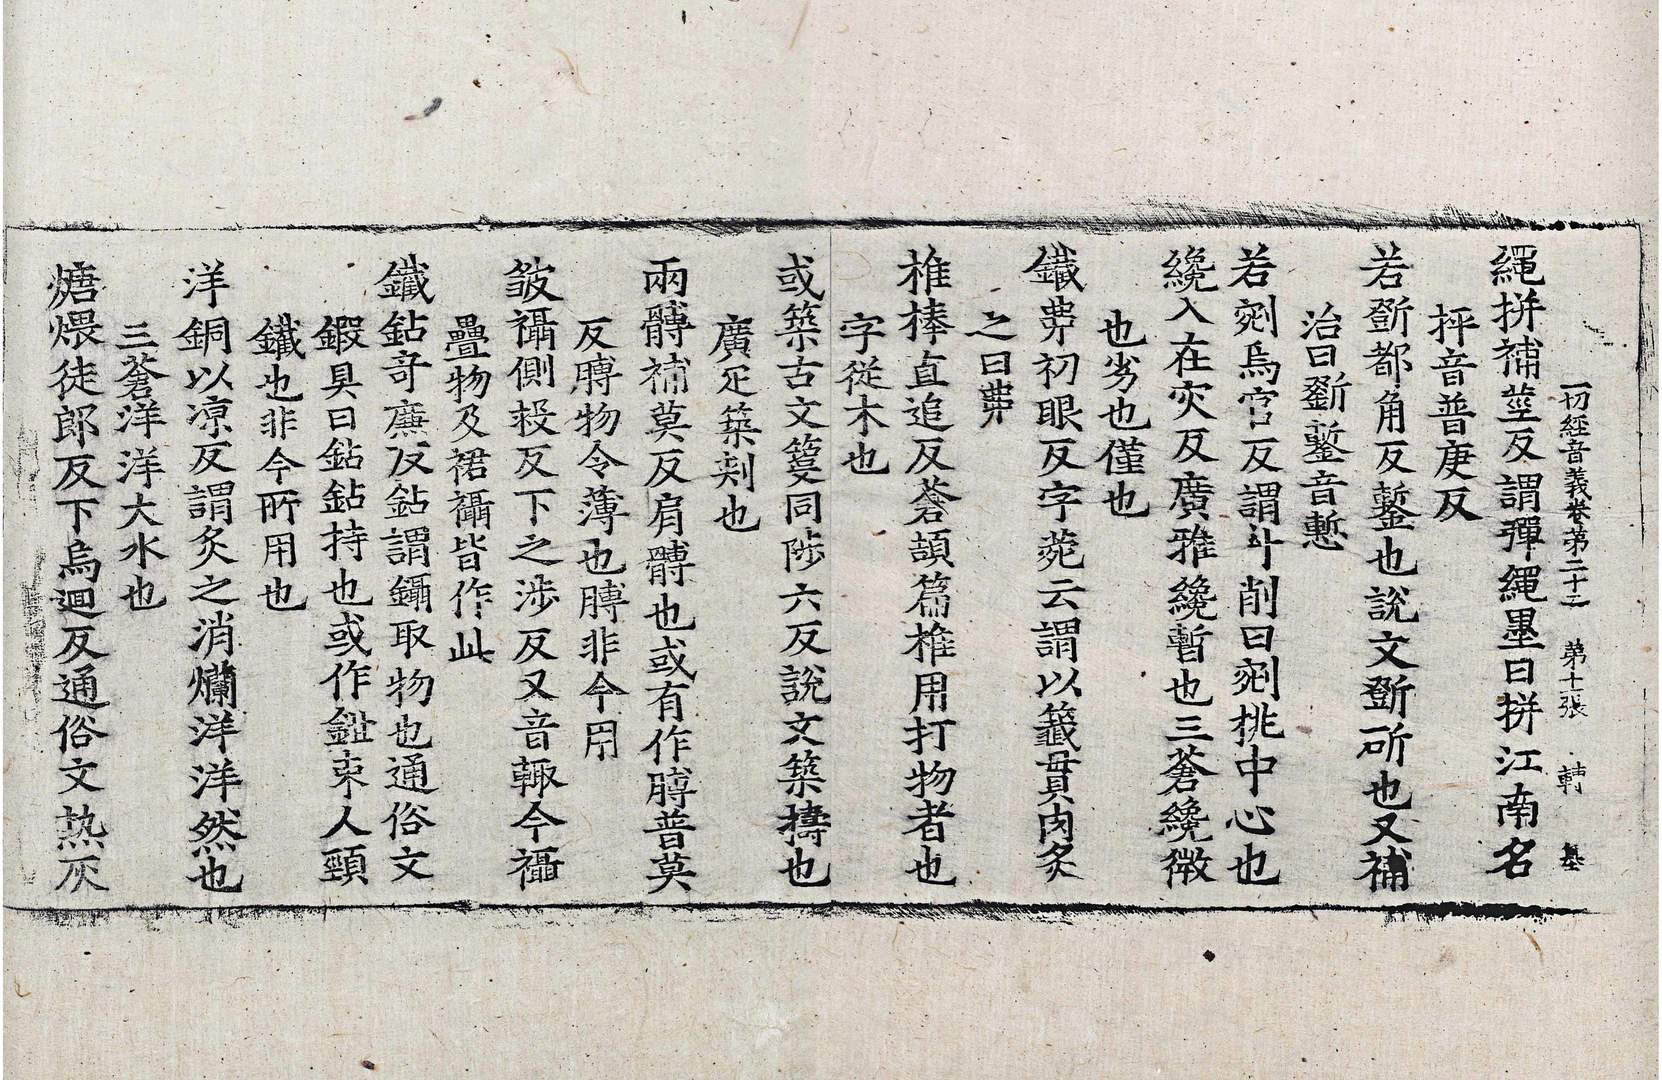 一切經音義卷第二十三 第十張 轉
繩拼補莖反謂彈繩墨曰拼江南名
抨音普庚反
若斲都角反鏨也說文斲斫也又補
治曰斲鏨音慙
若剜烏官反謂斗削曰剜挑中心也
纔入在灾反廣雅纔暫也三蒼纔微
也劣也僅也
鐵丳初眼反字苑云謂以籤貫肉炙
之曰丳
椎棒直追反蒼頡篇椎用打物者也
字從木也
或築古文篫同陟六反說文築擣也
廣疋築刾也
兩髆補莫反肩髆也或有作膊普莫
反膊物令薄也膊非今用
皺襵側救反下之涉反又音輒今襵
疊物及裙襵皆作此
鐵鉆奇廉反鉆謂鑷取物也通俗文
鍜具曰鉆鉆持也或作鉗束人頸
鐵也非今所用也
洋銅以凉反謂炙之消爛洋洋然也
三蒼洋洋大水也
煻煨徒郎反下烏迴反通俗文热灰